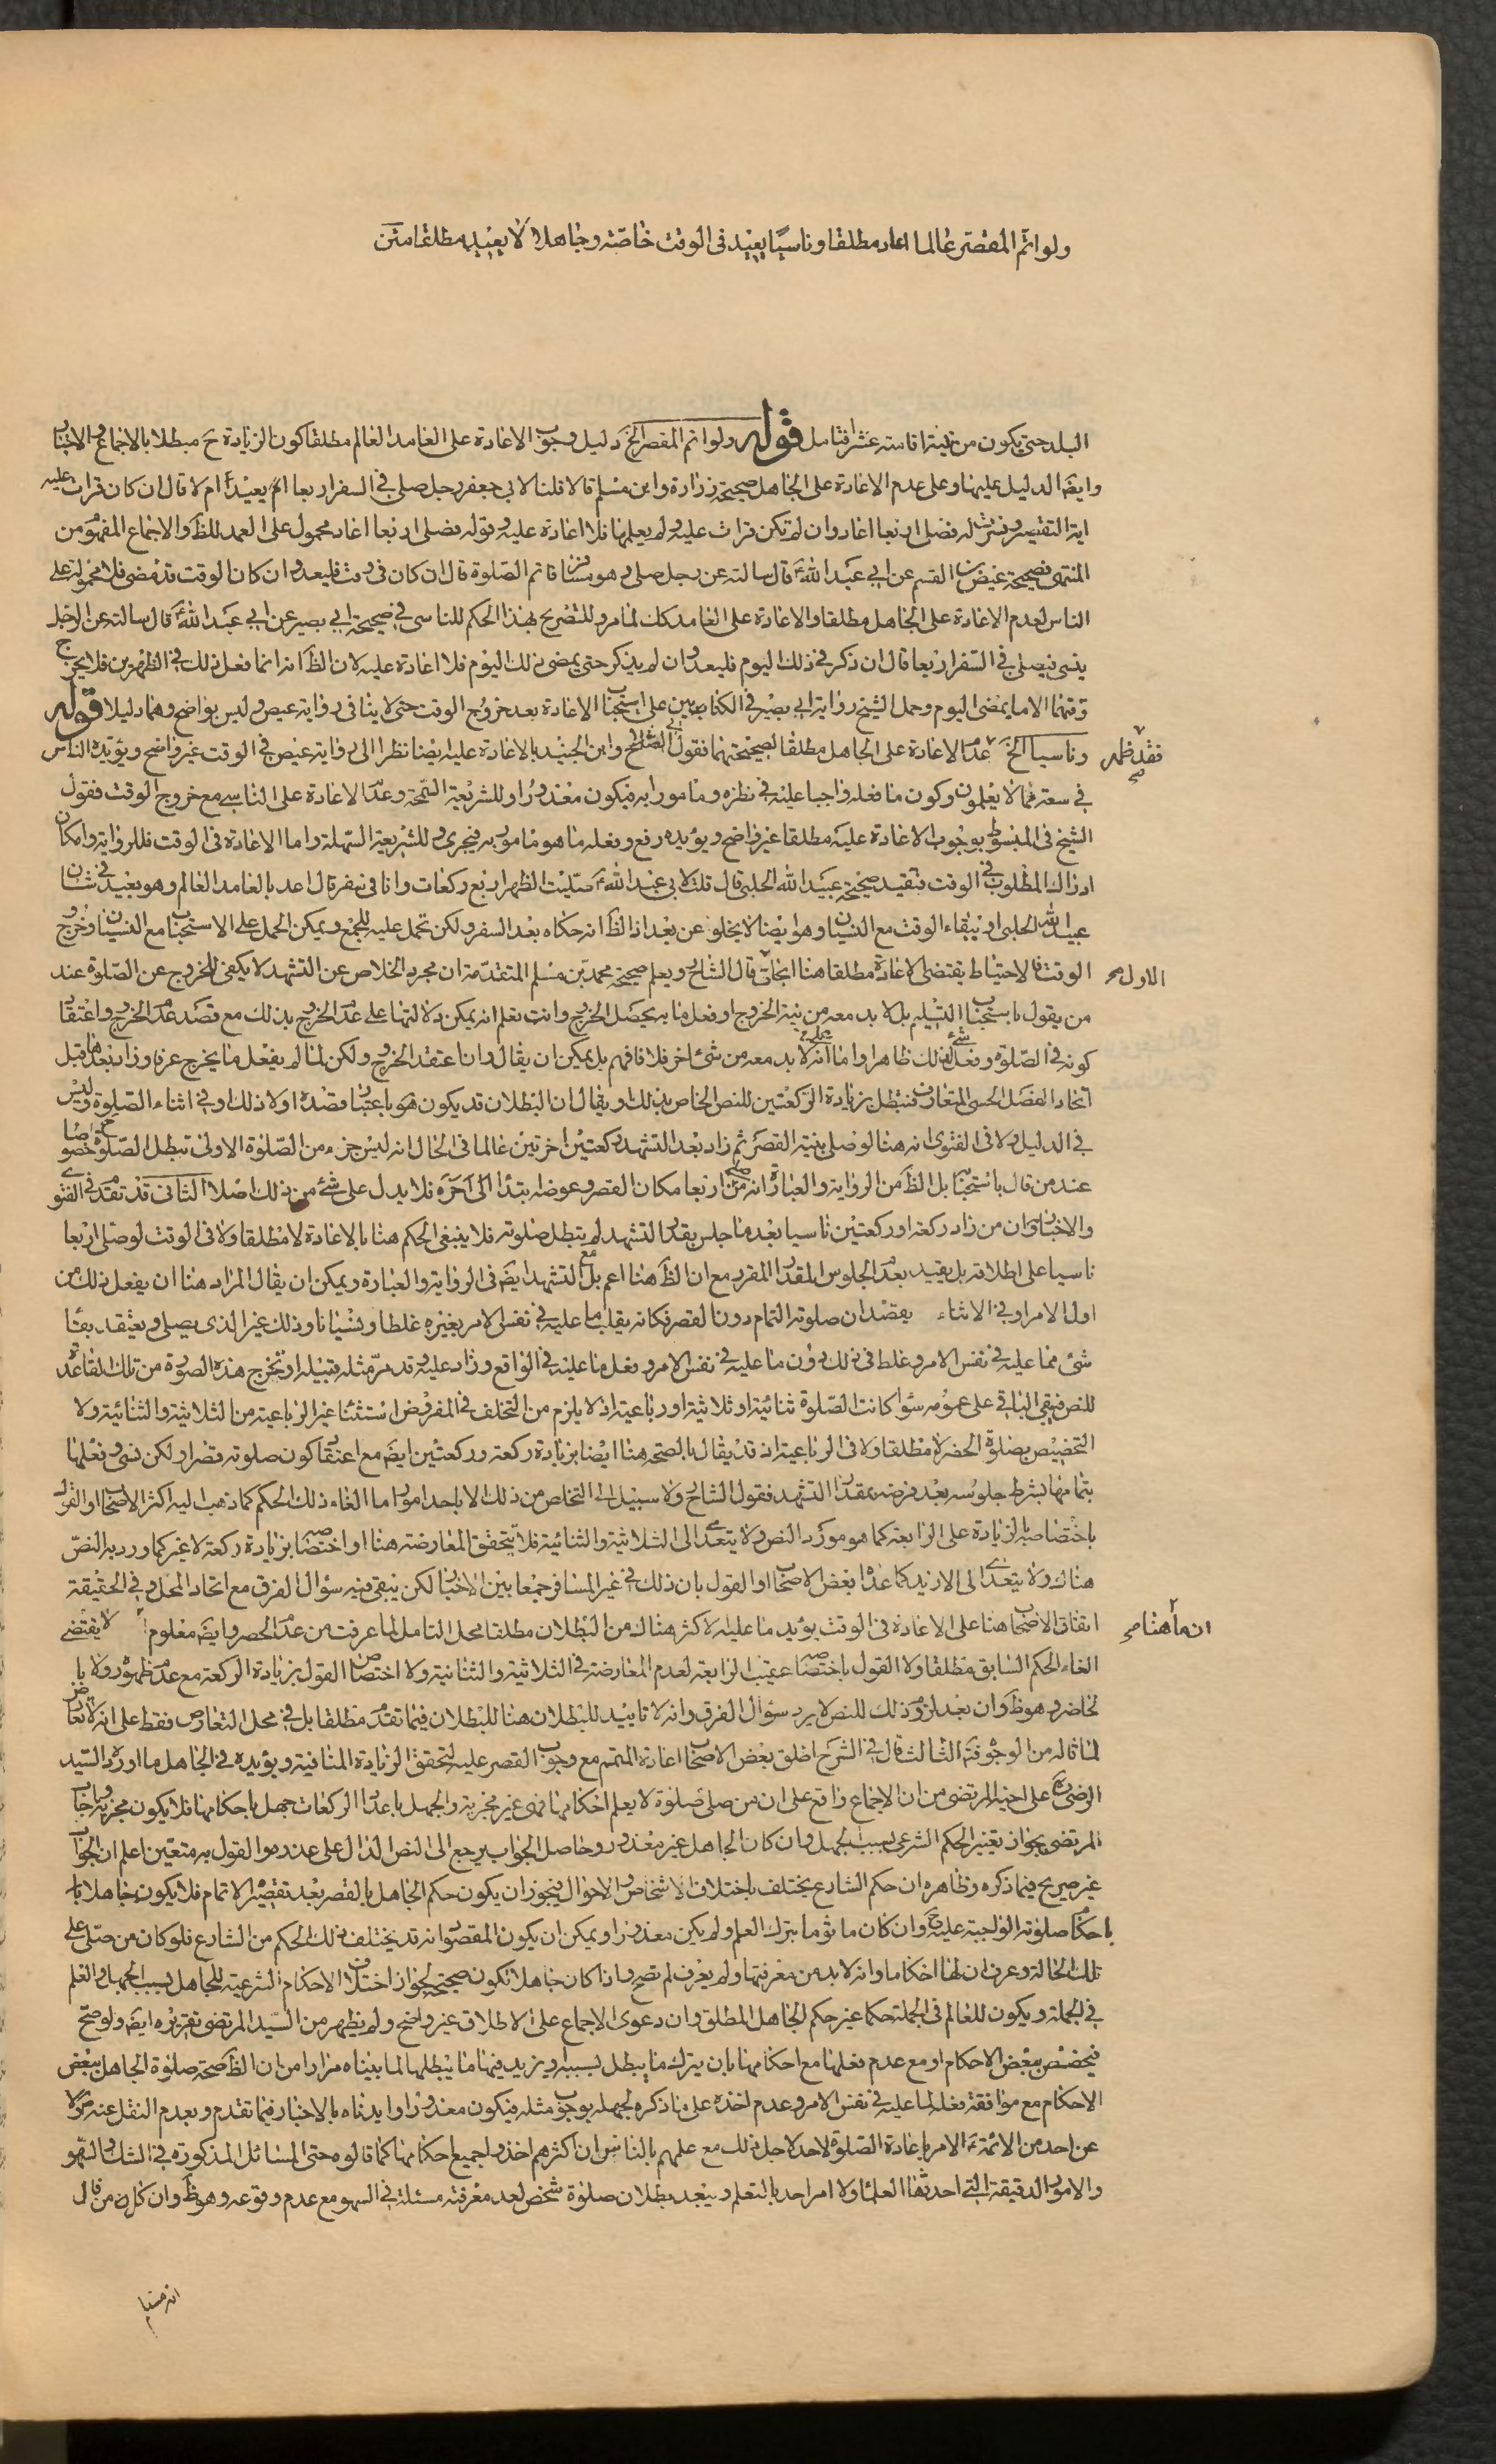 ولو اتم المقصر عالما اعاد مطلقا وناسيا يعيد فى الوقت خاصة وجاهلا لا يعيد مطلقا متن
البلد حتى يكون من نيته اقامته عشرا فتامل قوله ولو اتم المقصر الخ دليل وجوب الاعادة على العامد العالم مطلقا كون الزيادة ح مبطلا بالاجماع والاخبار
وايضا الدليل عليها وعلى عدم الاعادة على الجاهل صحيحة زرارة وابن مسلم قالا قلنا لابى جعفر رجل صلى فى السفر اربعا ايعيد ام لا قال ان كان قرات عليه
اية التقصير وفسرت له فصلى اربعا اعاد وان لم تكن قرات عليه ولم يعلمها فلا اعادة عليه وقوله فصلى اربعا اعاد محمول على العمد للظ والاجماع المفهوم من
المنتهى وصحيحة عيص بن القسم عن ابى عبد الله ع قال سالته عن رجل صلى وهو مسافر فاتم الصلوة قال ان كان فى وقت فليعد وان كان الوقت قد مضى فلا محمولة على
الناسى لعدم الاعادة على الجاهل مطلقا والاعادة على العامد كك لما مر وللتصريح بهذا الحكم للناسى فى صحيحة ابى بصير عن ابى عبد الله ع قال سالته عن الرجل
ينسى فيصلى فى السفر اربعا قال ان ذكر فى ذلك اليوم فليعد وان لم يذكر حتى يمضى ذلك اليوم فلا اعادة عليه لان الظ انه انما فعل ذلك فى الظهرين فلا يخرج
وقتهما الا ما بمضى اليوم وحمل الشيخ رواية ابى بصير فى الكتابين على استحباب الاعادة بعد خروج الوقت حتى لا ينافى رواية عيص وليس بواضح وهما دليلا قوله
وناسيا الخ عدم الاعادة على الجاهل مطلقا لصحيحتهما فقول ابى الصلاح وابن الجنيد بالاعادة عليه ايضا نظرا الى رواية عيص فى الوقت غير واضح ويؤيده الناس
فقد ظهر صح
فى سعة مما لا يعلمون وكون ما فعله واجبا عليه فى نظره ومامورا به فيكون معذورا وللشريعة السمحة وعدم الاعادة على الناسى مع خروج الوقت فقول
الشيخ فى المبسوط بوجوب الاعادة عليه مطلقا غير واضح ويؤيده رفع وفعله ما هو مامور به فيجرى وللشريعة السهلة واما الاعادة فى الوقت فللرواية وامكان
ادراك المطلوب فى الوقت فتقيد صحيحة عبيد الله الحلبى قال قلت لابى عبد الله ع صليت الظهر اربع ركعات وانا فى سفر قال اعد بالعامد العالم وهو بعيد فى شان
عبيد الله الحلبى او ببقاء الوقت مع النسيان وهو ايضا لا يخلو عن بعد اذ الظ انه حكاه بعد السفر ولكن تحمل عليه للجمع ويمكن الحمل على الاستحباب مع النسيان وخروج
الوقت فالاحتياط يقتضى الاعادة مطلقا هنا ابحاث قال الشارح ويعلم صحيحة محمد بن مسلم المتقدمة ان مجرد الخلاص عن التشهد لا يكفى للخروج عن الصلوة عند
الاول صح
من يقول باستحباب التسليم بل لا بد معه من نية الخروج او فعل ما به يحصل الخروج وانت تعلم انه يمكن دلالتها على عدم الخروج بذلك مع قصد عدم الخروج واعتقاد
كونه فى الصلوة وفعله شئ لذلك ظاهرا واما انه لا بد معه من شئ اخر فلا فافهم بل يمكن ان يقال وان اعتقد الخروج ولكن لما لم يفعل ما يخرج عرفا وزاد بعدها قبل
اتحاد الفصل الحسى المتعارف فتبطل بزيادة الركعتين للنص الخاص بذلك ويقال ان البطلان قد يكون هو باعتبار قصده اولا ذلك او فى اثناء الصلوة وليس
فى الدليل ولا فى الفتوى انه هنا لو صلى بنية القصر ثم زاد بعد التشهد ركعتين اخرتين عالما فى الحال انه ليس جزء من الصلوة الاولى تبطل الصلوة خصوصا
عند من قال باستحبابه بل الظ من الرواية والعبارة انه من صلى اربعا مكان القصر وعوضه ابتداء الى اخره فلا يدل على شئ من ذلك اصلا الثانى قد تقدم فى الفتوى
والاخبار ان من زاد ركعة او ركعتين ناسيا بعد ما جلس بقدر التشهد لم يبطل صلوته فلا ينبغى الحكم هنا بالاعادة لا مطلقا ولا فى الوقت لو صلى اربعا
ناسيا على اطلاقه بل يقيد بعدم الجلوس المقدار المقرر مع ان الظ هنا اعم بل مع التشهد ايضا فى الرواية والعبارة ويمكن ان يقال المراد هنا ان يفعل ذلك من
اول الامر او فى الاثناء بقصد ان صلوته التمام دون القصر فكانه يقلب ما عليه فى نفس الامر بغيره غلطا ونسيانا وذلك غير الذى يصلى ويعتقد بقاء
شئ مما عليه فى نفس الامر وغلط فى ذلك دون ما عليه فى نفس الامر وفعل ما عليه فى الواقع وزاد عليه وقد مر مثله قبيله او تخرج هذه الصورة من تلك القاعدة
للنص فيبقى الباقى على عمومه سواء كانت الصلوة ثنائية او ثلاثية او رباعية اذ لا يلزم من التخلف فى المفروض استثناء غير الرباعية من الثلاثية والثنائية ولا
التخصيص بصلوة الحضر لا مطلقا ولا فى الرباعية اذ قد يقال بالصحة هنا ايضا بزيادة ركعة وركعتين ايضا مع اعتقاد كون صلوته قصرا ولكن نسى وفعلها
بتمامها بشرط جلوسه بعد فرضه بمقدار التشهد فقول الشارح ولا سبيل الى التخلص من ذلك الا باحد امور اما الغاء ذلك الحكم كما ذهب اليه اكثر الاصحاب او القول
باختصاصه بالزيادة على الرابعة كما هو مورد النص ولا يتعدى الى الثلاثية والثنائية فلا يتحقق المعارضة هنا او اختصاصه بزيادة ركعة لا غير كما ورد به النص
هناك ولا يتعدى الى الازيد كما عداه بعض الاصحاب او القول بان ذلك فى غير المسافر جمعا بين الاخبار لكن يبقى فيه سؤال الفرق مع اتحاد المحل وفى الحقيقة
اتفاق الاصحاب هنا على الاعادة فى الوقت يؤيد ما عليه الاكثر هناك من البطلان مطلقا محل التامل لما عرفت من عدم الحصر وايضا معلوم لا يقتضى
ان ما هنا صح
الغاء الحكم السابق مطلقا ولا القول باختصاصه عقيب الرابعة لعدم المعارضة فى الثلاثية والثنائية ولا اختصاص القول بزيادة الركعة مع عدم ظهوره ولا با
لحاضر وهو ظ وان بعد لزوم ذلك للنص لا يرد سؤال الفرق وانه لا تاييد للبطلان هنا للبطلان فيما تقدم مطلقا بل فى محل التعارض فقط على انه لا تعارض
لما قاله من الوجوه فت الثالث قال فى الشرح اطلق بعض الاصحاب اعادة المتمم مع وجوب القصر عليه لتحقق الزيادة المنافية ويؤيده فى الجاهل ما اورد السيد
الرضى ره على اخيه المرتضى من ان الاجماع واقع على ان من صلى صلوة لا يعلم احكامها فهى غير مجزية والجهل باعداد الركعات جهل باحكامها فلا يكون مجزية واجاب
المرتضى بجواز تغيير الحكم الشرعى بسبب الجهل وان كان الجاهل غير معذور وحاصل الجواب يرجع الى النص الدال على عذره والقول به متعين اعلم ان الجواب
غير صريح فيما ذكره وظاهره ان حكم الشارع يختلف باختلاف الاشخاص والاحوال فيجوز ان يكون حكم الجاهل بالقصر بعد تقصير الاتمام فلا يكون جاهلا با
باحكام صلوته الواجبة عليه ح وان كان ماثوما بترك العلم ولم يكن معذورا ويمكن ان يكون المقصود انه قد يختلف ذلك الحكم من الشارع فلو كان من صلى على
تلك الحالة وعرف ان لها احكاما وانه لا بد من معرفتها ولم يعرف لم تصح واذا كان جاهلا تكون صحيحة لجواز اختلاف الاحكام الشرعية للجاهل بسبب الجهل والعلم
فى الجملة ويكون للعالم فى الجملة حكما غير حكم الجاهل المطلق وان دعوى الاجماع على الاطلاق غير واضح ولم يظهر من السيد المرتضى تقريره ايضا ولو صح
فيخصص ببعض الاحكام او مع عدم فعلها مع احكامها بان يترك ما يبطل بسببه او يزيد فيها ما يبطلها لما بيناه مرارا من ان الظ صحة صلوة الجاهل ببعض
الاحكام مع موافقة فعله لما عليه فى نفس الامر وعدم اخذه على ما ذكره لجهله بوجوب مثله فيكون معذورا وايدناه بالاخبار فيما تقدم وبعدم النقل عنه ص ولا
عن احد من الائمة ع الامر باعادة الصلوة لاحد لاجل ذلك مع علمهم بالناس ان اكثرهم اخذوا جميع احكامها كما قالوه حتى المسائل المذكورة فى الشك والسهو
والامور الدقيقة التى احدثها العلماء ولا امر احد بالتعلم ويبعد بطلان صلوة شخص لعدم معرفته مسئلة فى السهو مع عدم وقوعه وهو ظ وان كان من قال